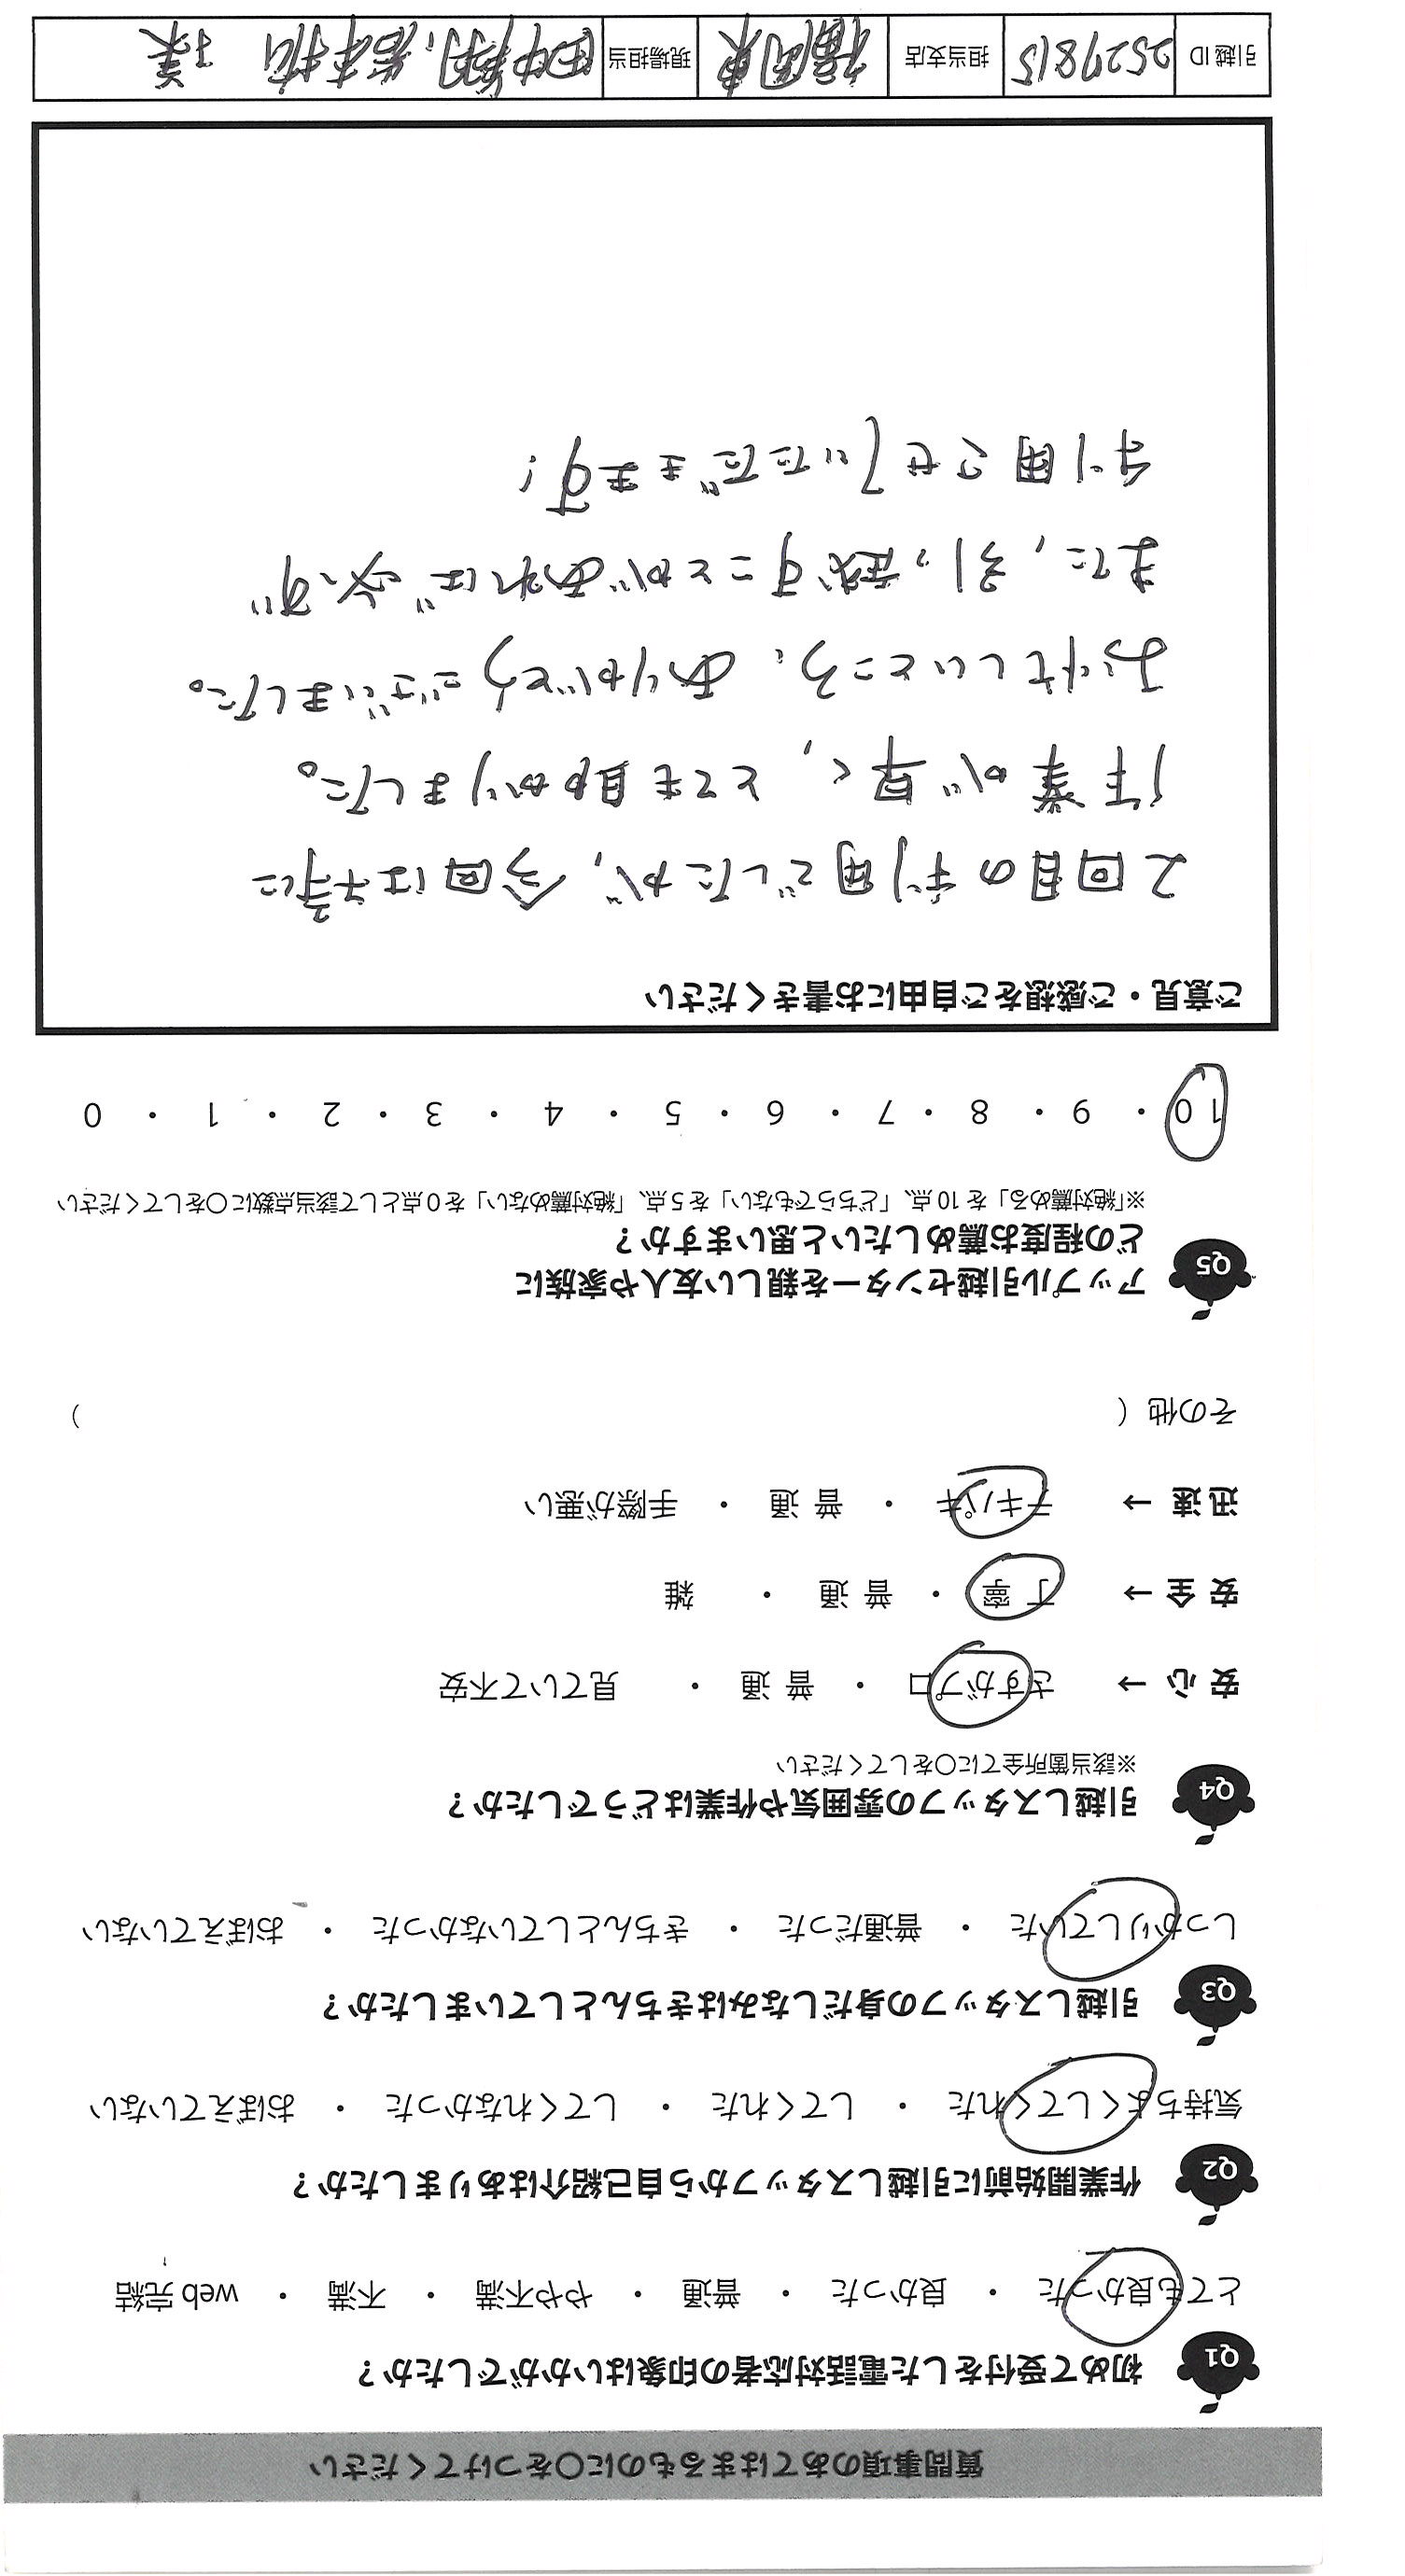 質問事項のあてはまるものに○をつけてください
Q1 初めて受付をした電話対応者の印象はいかがでしたか？
とても良かった ・ 良かった ・ 普通 ・ やや不満 ・ 不満 ・ web 完結
Q2 作業開始前に引越しスタッフから自己紹介はありましたか？
気持ちよくしてくれた ・ してくれた ・ してくれなかった ・ おぼえていない
Q3 引越しスタッフの身だしなみはきちんとしていましたか？
しっかりしていた ・ 普通だった ・ きちんとしていなかった ・ おぼえていない
Q4 引越しスタッフの雰囲気や作業はどうでしたか？
※該当箇所全てに○をしてください
安心 → さすがプロ ・ 普通 ・ 見ていて不安
安全 → 丁寧 ・ 普通 ・ 雑
迅速 → テキパキ ・ 普通 ・ 手際が悪い
その他（ ）
Q5 アップル引越センターを親しい友人や家族に
どの程度お薦めしたいと思いますか？
※「絶対薦める」を 10 点、「どちらでもない」を 5 点、「絶対薦めない」を 0 点として該当点数に○をしてください
10 ・ 9 ・ 8 ・ 7 ・ 6 ・ 5 ・ 4 ・ 3 ・ 2 ・ 1 ・ 0
ご意見・ご感想をご自由にお書きください
2回目の利用でしたが、今回は特に
作業が早く、とても助かりました。
お忙しいところ、ありがとうございました。
また、引っ越すことがあれば必ず
利用させていただきます！
引越 ID 2527815 担当支店 福岡東 現場担当 田中翔、岩本拓